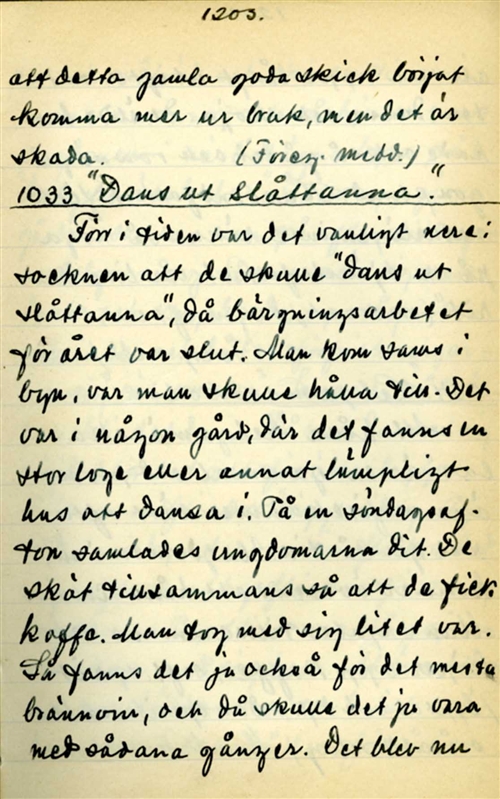 1203.
att detta gamla goda skick börjat
komma mer ur bruk, men det är
skada. (Föreg. medd.)
1033 "Dans ut slåttanna".
Förr i tiden var det vanligt nere i
socknen att de skulle "dans ut
slåttanna", då bärgningsarbetet
för året var slut. Man kom sams i
byn, var man skulle hålla till. Det
var i någon gård, där det fanns en
stor loge eller annat lämpligt
hus att dansa i. På en söndagsaf-
ton samlades ungdomarna dit. De
sköt tillsammans så att de fick
kaffe. Man tog med sig litet var.
Så fanns det ju också för det mesta
brännvin, och då skulle det ju vara
med sådana gånger. Det blev nu